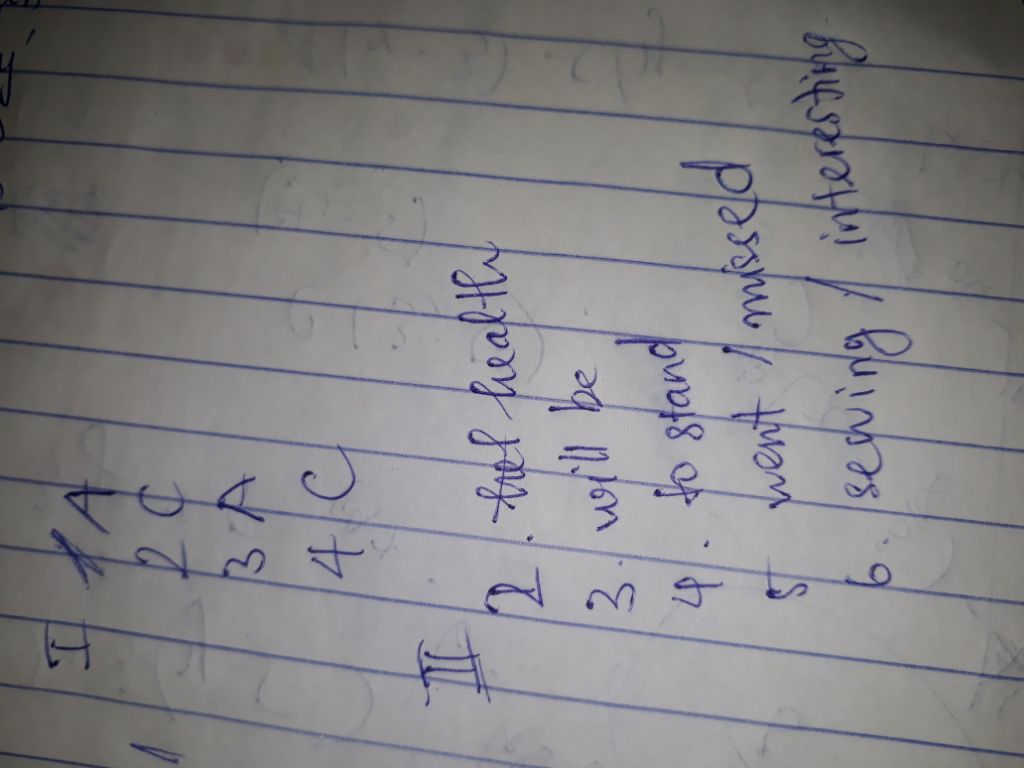 I 1 A
2 C
3 A
4 C
II
2. healthy
3. will be
4. to stand
5 went / missed
6. sewing / interesting